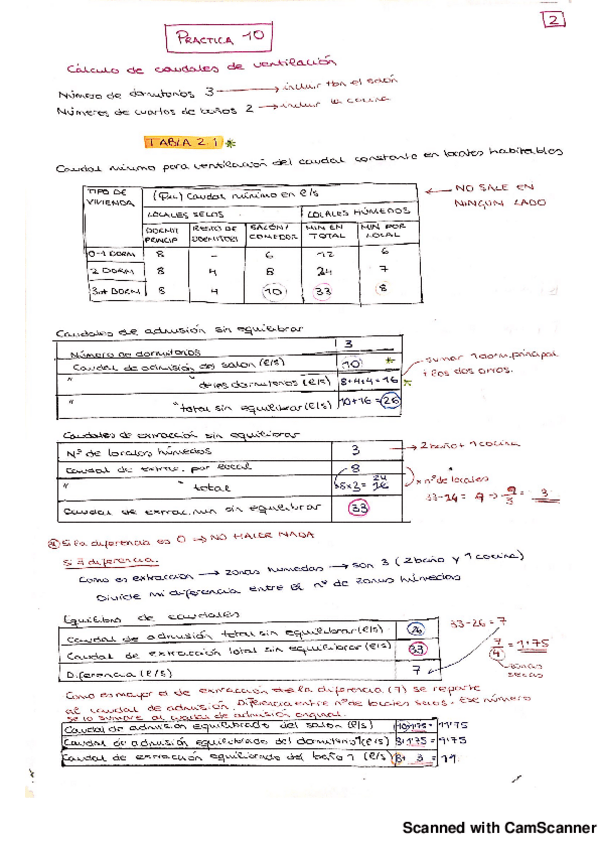 2
PRACTICA 10
Cálculo de caudales de ventilación
Número de dormitorios 3 → incluir tbn el salón
Números de cuartos de baños 2 → incluir la cocina
TABLA 2.1 *
Caudal mínimo para ventilación del caudal constante en locales habitables
TIPO DE VIVIENDA
Caudal mínimo en l/s
← NO SALE EN NINGUN LADO
LOCALES SECOS LOCALES HÚMEDOS
DORMIT PRINCIP RESTO DE DORMITORI SALÓN/COMEDOR MIN EN TOTAL MIN POR LOCAL
0-1 DORM 8 - 6 12 6
2 DORM 8 4 8 24 7
3+ DORM 8 4 10 33 8
Caudales de admisión sin equilibrar
Número de dormitorios 3
Caudal de admisión del salon (l/s) 10 *
" de los dormitorios (l/s) 8+4+4=16 *
sumar 1 dorm.principal + los dos otros.
" total sin equilibrar (l/s) 10+16=26
Caudales de extracción sin equilibrar
Nº de locales húmedos 3 → 2 baño + 1 cocina
Caudal de extrac. por local 8
" total 8x3= 24
x nº de locales
33-24 = 9 → 9/3 = 3
Caudal de extrac. min sin equilibrar 33
Si la diferencia es 0 → NO HACER NADA
Si ≠ diferencia.
Como es extraccion → zonas humedas → son 3 (2 baño y 1 cocina)
Divide mi diferencia entre el nº de zonas húmedas
Equilibrio de caudales
Caudal de admisión total sin equilibrar (l/s) 26
33-26 = 7
Caudal de extracción total sin equilibrar (l/s) 33
7/4 = 1'75
zonas secas
Diferencia (l/s) 7
Como es mayor el de extracción la diferencia (7) se reparte
al caudal de admisión. Diferencia entre nº de locales secos. Ese número
se lo sumare al caudal de admisión original.
Caudal de admisión equilibrado del salon (l/s) 10+1'75 = 11'75
Caudal de admisión equilibrado del dormitorio 1 (l/s) 8+1'75 = 9'75
Caudal de extracción equilibrado del baño 1 (l/s) 8+3 = 11
Scanned with CamScanner